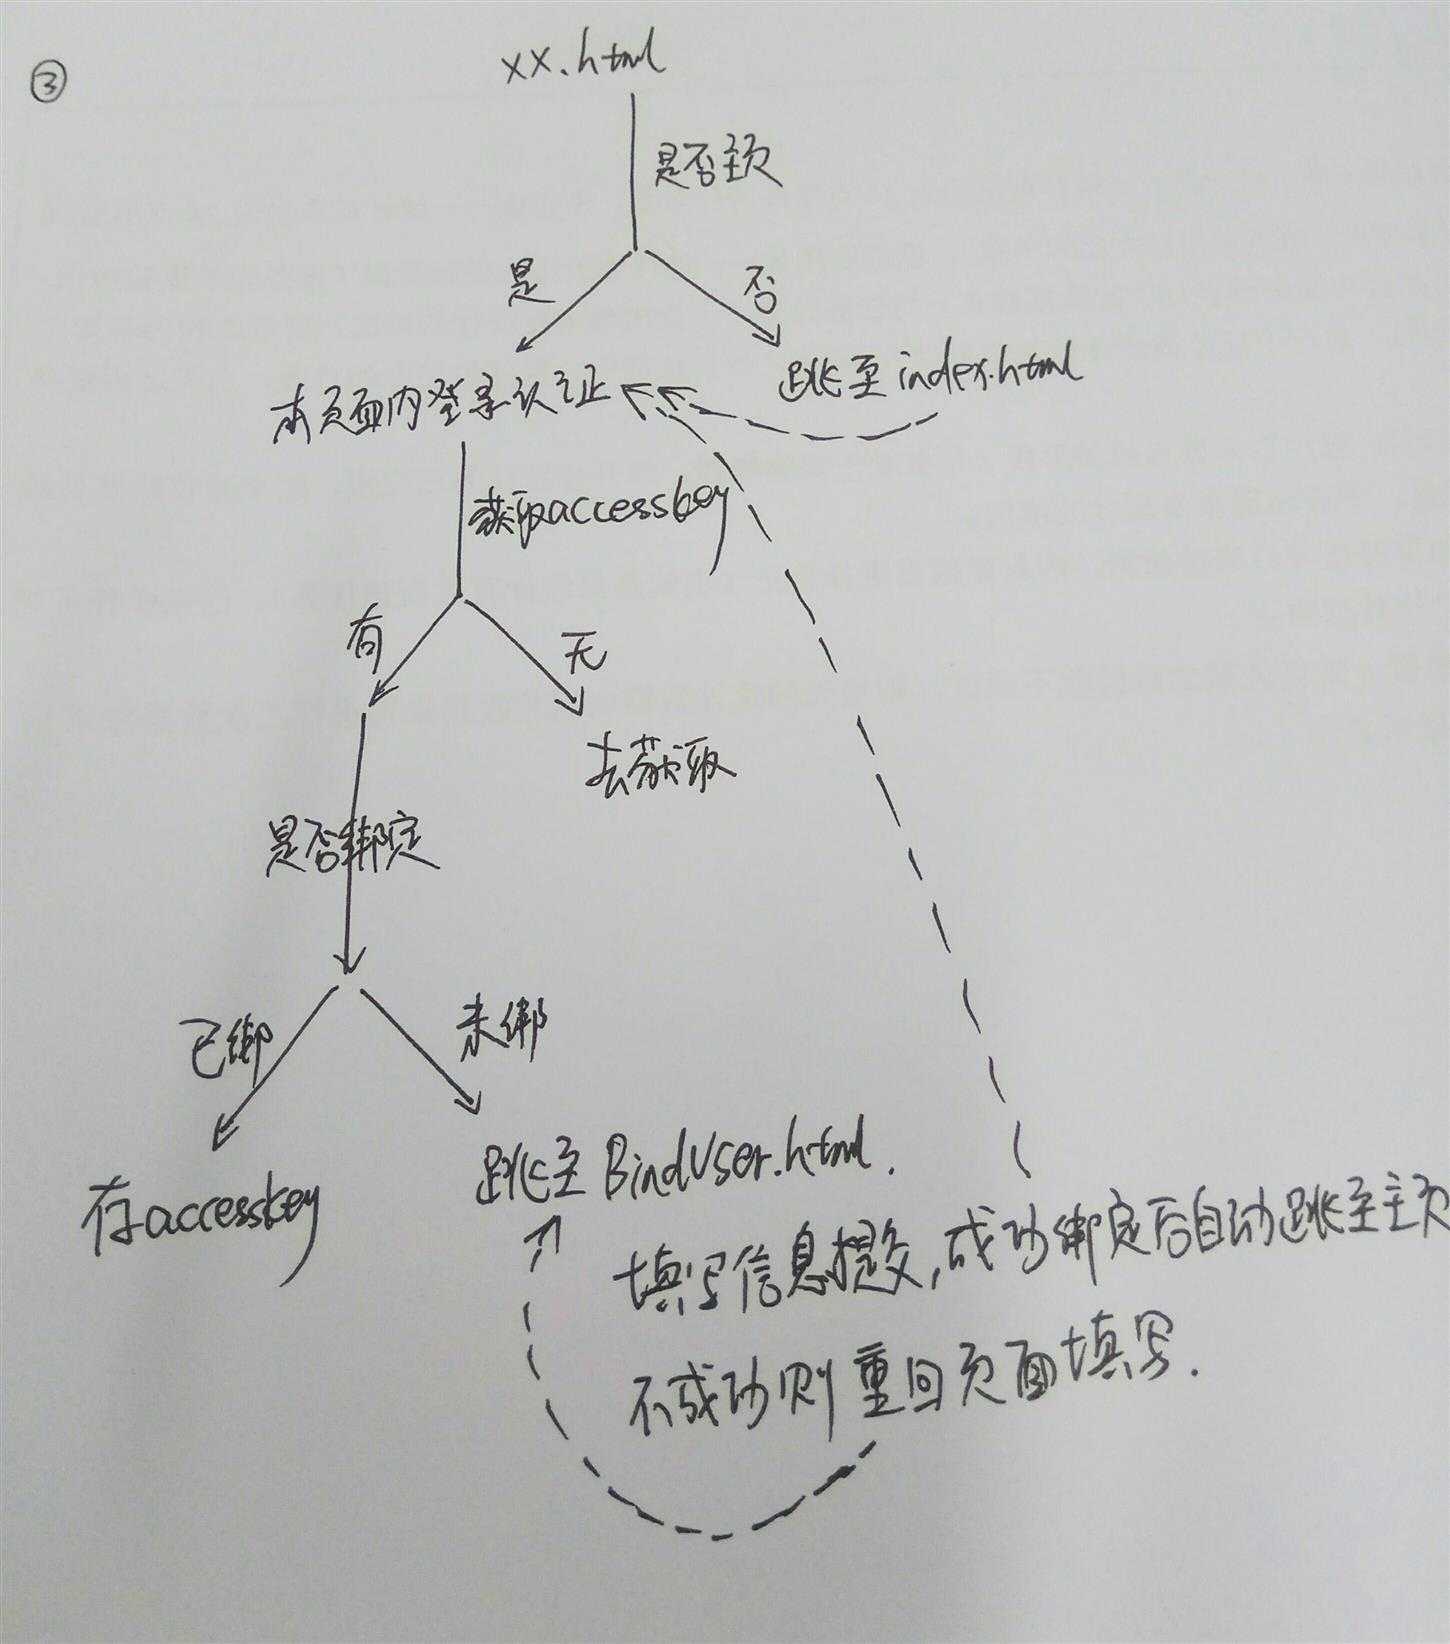 ③
xx.html
是否主页
是
否
本页面内登录认证
跳至index.html
获取accesskey
有
无
去获取
是否绑定
已绑
未绑
存accesskey
跳至BindUser.html.
填写信息提交,成功绑定后自动跳至主页
不成功则重回页面填写.